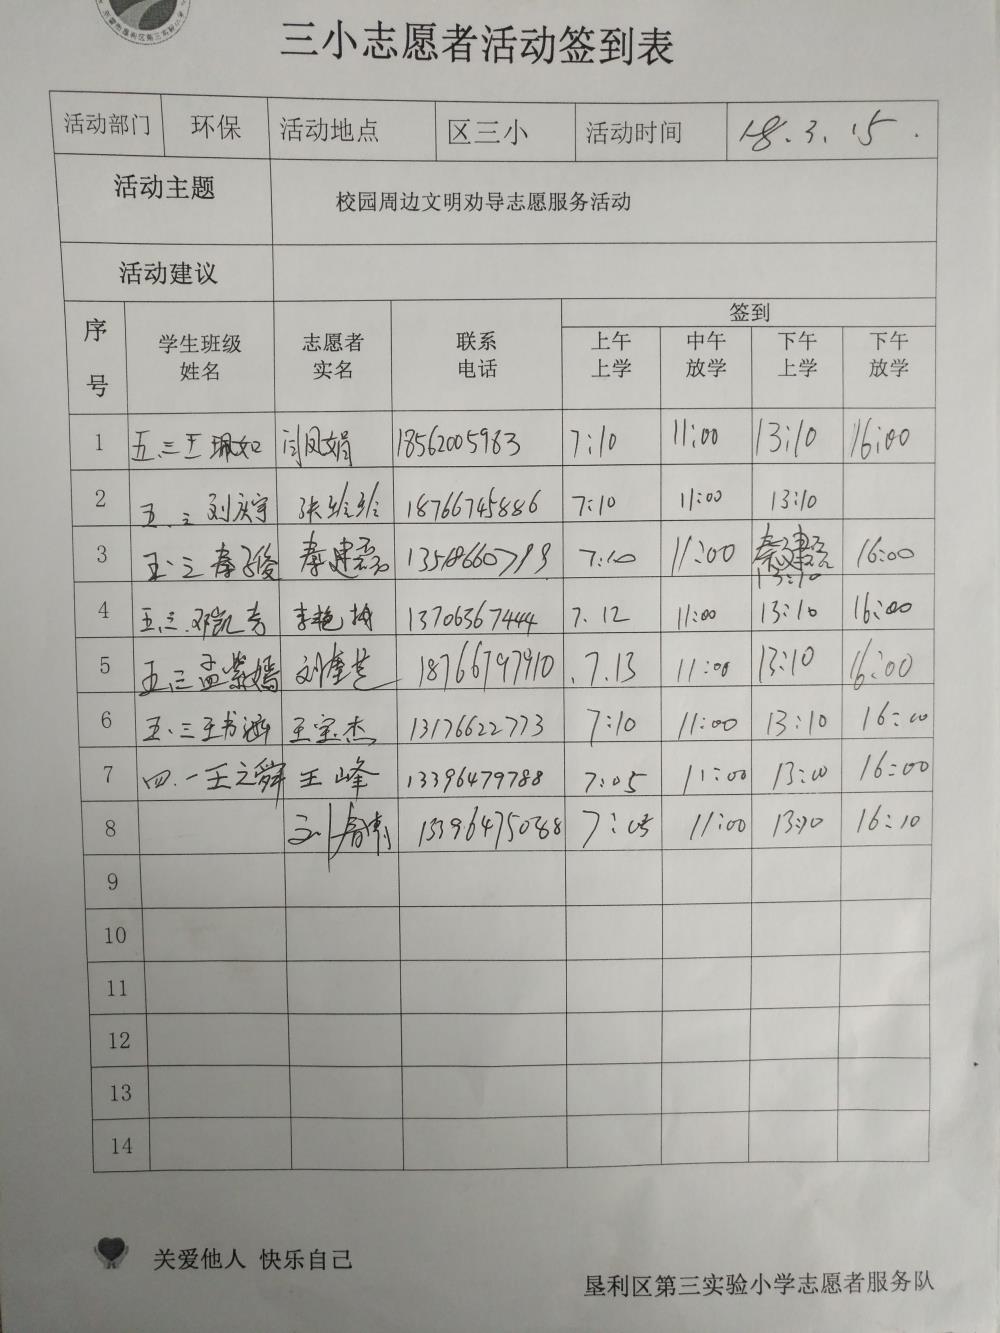 三小志愿者活动签到表
活动部门 环保 活动地点 区三小 活动时间 18.3.15.
活动主题 校园周边文明劝导志愿服务活动
活动建议
签到
序号 学生班级姓名 志愿者实名 联系电话 上午上学 中午放学 下午上学 下午放学
1 五.三王珮如 闫凤娟 18562005983 7:10 11:00 13:10 16:00
2 五.三 刘庆宇 张丝丝 18766745886 7:10 11:00 13:10
3 五.三秦子俊 秦建磊 13518660799 7:10 11:00 秦建磊 13:10 16:00
4 五.三.邓凯 李艳 13706367444 7.12 11:00 13:10 16:00
5 五.三孟紫嫣 刘奎芝 18766797910 7.13 11:00 13:10 16:00
6 五.三王书涵 王宝杰 13176622773 7:10 11:00 13:10 16:00
7 四.一王之舜 王峰 13396479788 7:05 11:00 13:00 16:00
8 刘春 13396475088 7:05 11:00 13:10 16:10
9
10
11
12
13
14
关爱他人 快乐自己
垦利区第三实验小学志愿者服务队